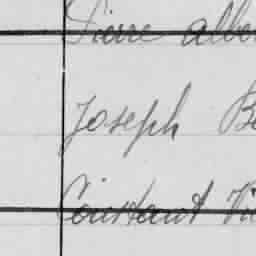 Pierre Albe
Joseph Be
Constant Vi